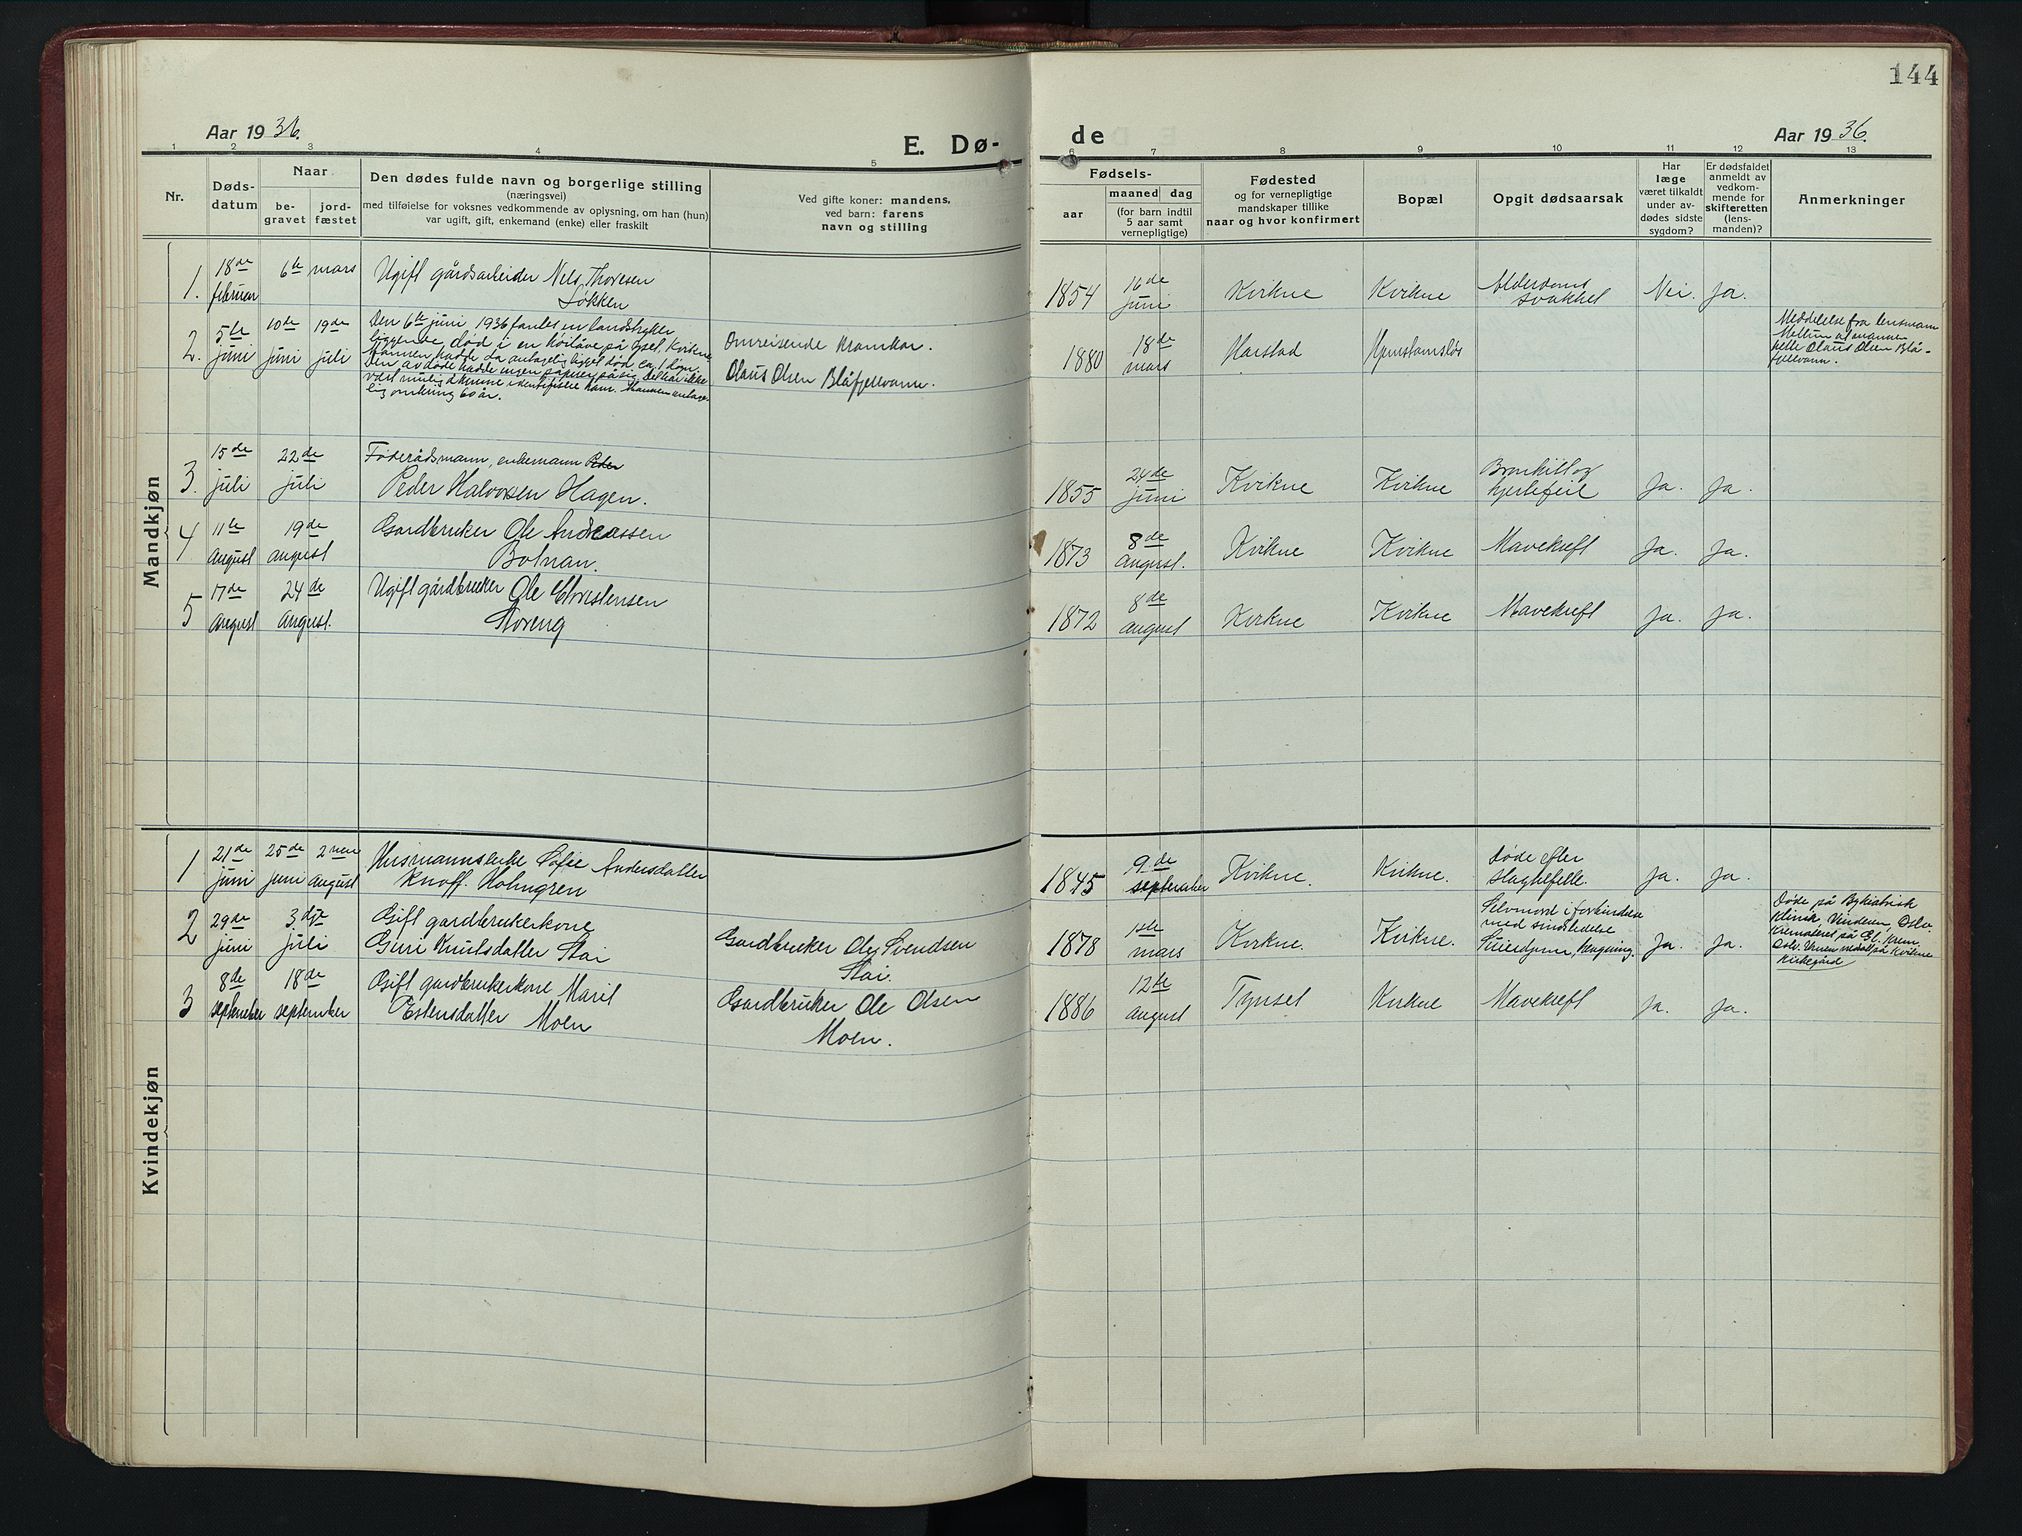 144
Aar 1936.
E. Dø-
de
Aar 1936.
1 2 3 4 5 6 7 8 9 10 11 12 13
Nr.
Døds-
datum
Naar
be-
gravet
jord-
fæstet
Den dødes fulde navn og borgerlige stilling
(næringsvei)
med tilføielse for voksnes vedkommende av oplysning, om han (hun)
var ugift, gift, enkemand (enke) eller fraskilt
Ved gifte koner: mandens,
ved barn: farens
navn og stilling
Fødsels-
aar
maaned dag
(for barn indtil
5 aar samt
vernepligtige)
Fødested
og for vernepligtige
mandskaper tillike
naar og hvor konfirmert
Bopæl
Opgit dødsaarsak
Har
læge
været tilkaldt
under av-
dødes sidste
sygdom?
Er dødsfaldet
anmeldt av
vedkom-
mende for
skifteretten
(lens-
manden)?
Anmerkninger
Mandkjøn
1. 18de februar 6te mars Ugift gårdsarbeider Nels Thoresen
Løkken
1854 16de juni Kvikne Kvikne Alderdoms
svakhet Nei. Ja.
2. 5te juni 10de juni 19de juli
Den 6te juni 1936 fantes en landstryker
liggende død i en høiløve på Yset, Kvikne
Mannen hadde da antagelig ligget død ca. 1 døgn.
Den avdøde hadde ingen papirer på sig. Det har ikke
vært mulig å kunne identifisere ham. Mannen antage-
lig omkring 60 år.
Omreisende kramkar.
Olaus Olsen Blåfjellvann.
1880 18de mars Harstad Hjemstamsløs
Meddelelse fra lensmann
Mellum at mannen
hette Olaus Olsen Blå-
fjellvann.
3. 15de juli 22de juli Føderådsmann, enkemann Peder
Peder Halvorsen Hagen.
1855 24de juni Kvikne Kvikne Bronkitt og
hjertefeil Ja. Ja.
4 11te august 19de august Gardbruker Ole Andreassen
Botnan.
1873 8de august. Kvikne Kvikne Mavekreft Ja. Ja.
5 17de august 24de august. Ugift gårdbruker Ole Christensen
Storeng
1872 8de august Kvikne Kvikne Mavekreft Ja. Ja.
Kvindekjøn
1 21de juni 25de juni 2nen august Husmannsenke Sofie Andersdatter
Knoff. Holmgren
1845 9de september Kvikne. Kvikne. Døde efter
slagtilfelle. Ja. Ja.
2 29de juni 3dje juli Gift gardbrukerkone
Guri Knutsdatter Stai
Gardbruker Ole Svendsen
Stai.
1878 1ste mars Kvikne. Kvikne.
Selvmord i forbindelse
med sindslidelse
Hengning. Ja. Ja.
Døde på Psykiatrisk
Klinik Vinderen, Oslo
Kremeret på Gl. Krem.
Oslo. Urnen nedsatt på Kvikne
kirkegård
3 8de september 18de september Gift gardbrukerkone Marit
Estensdatter Moen
Gardbruker Ole Olsen
Moen.
1886 12te august Tynset Kvikne Mavekreft Ja. Ja.